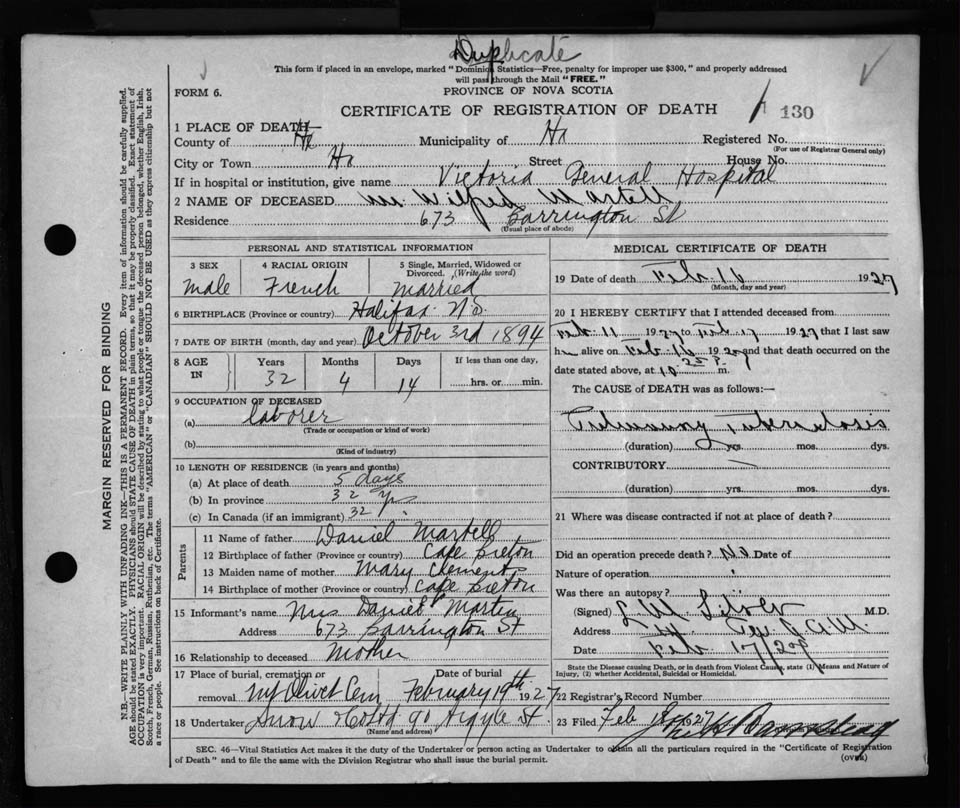 Duplicate
This form if placed in an envelope, marked "Dominion Statistics—Free, penalty for improper use $300," and properly addressed
will pass through the Mail "FREE."
FORM 6.
PROVINCE OF NOVA SCOTIA
CERTIFICATE OF REGISTRATION OF DEATH 130
1 PLACE OF DEATH—
County of Hx Municipality of Hx Registered No.
(For use of Registrar General only)
City or Town Hx Street House No.
If in hospital or institution, give name Victoria General Hospital
2 NAME OF DECEASED Mr Wilfred Martell
Residence 673 Barrington St
(Usual place of abode)
PERSONAL AND STATISTICAL INFORMATION
3 SEX 4 RACIAL ORIGIN 5 Single, Married, Widowed or Divorced. (Write the word)
Male French Married
6 BIRTHPLACE (Province or country) Halifax NS
7 DATE OF BIRTH (month, day and year) October 3rd 1894
8 AGE IN Years Months Days If less than one day,
32 4 14 hrs. or min.
9 OCCUPATION OF DECEASED
(a) laborer
(Trade or occupation or kind of work)
(b)
(Kind of industry)
10 LENGTH OF RESIDENCE (in years and months)
(a) At place of death 5 days
(b) In province 32 yrs
(c) In Canada (if an immigrant) 32 yrs
Parents
11 Name of father Daniel Martell
12 Birthplace of father (Province or country) Cape Breton
13 Maiden name of mother Mary Clements
14 Birthplace of mother (Province or country) Cape Breton
15 Informant's name Mrs Daniel Martin
Address 673 Barrington St
16 Relationship to deceased Mother
17 Place of burial, cremation or removal Date of burial
Mt Olivet Cem February 19th 1927
18 Undertaker Snow & Co Ltd 90 Argyle St.
(Name and address)
MEDICAL CERTIFICATE OF DEATH
19 Date of death Feb 16 1927
(Month, day and year)
20 I HEREBY CERTIFY that I attended deceased from
Feb 11 1927 to Feb 17 1927 that I last saw
him alive on Feb 16 1927 and that death occurred on the
date stated above, at m.
The CAUSE of DEATH was as follows:—
Pulmonary Tuberculosis
(duration) yrs. mos. dys.
CONTRIBUTORY —
(duration) yrs. mos. dys.
21 Where was disease contracted if not at place of death?
Did an operation precede death? No Date of
Nature of operation
Was there an autopsy?
(Signed) L M Silver M.D.
Address
Date Feb 17/27
State the Disease causing Death, or in death from Violent Causes, state (1) Means and Nature of
Injury, (2) whether Accidental, Suicidal or Homicidal.
22 Registrar's Record Number
23 Filed Feb 1927
SEC. 46—Vital Statistics Act makes it the duty of the Undertaker or person acting as Undertaker to obtain all the particulars required in the "Certificate of Registration
of Death" and to file the same with the Division Registrar who shall issue the burial permit.
(over)
MARGIN RESERVED FOR BINDING
N.B.—WRITE PLAINLY WITH UNFADING INK—THIS IS A PERMANENT RECORD. Every item of information should be carefully supplied.
AGE should be stated EXACTLY. PHYSICIANS should STATE CAUSE OF DEATH in plain terms, so that it may be properly classified. Exact statement of
OCCUPATION is very important. RACIAL ORIGIN will be described by stating to what people or tongue the deceased person belonged, whether English, Irish,
Scotch, French, German, Russian, Ruthenian, etc. The terms "AMERICAN" or "CANADIAN" SHOULD NOT BE USED as they express citizenship but not
a race or people. See instructions on back of Certificate.